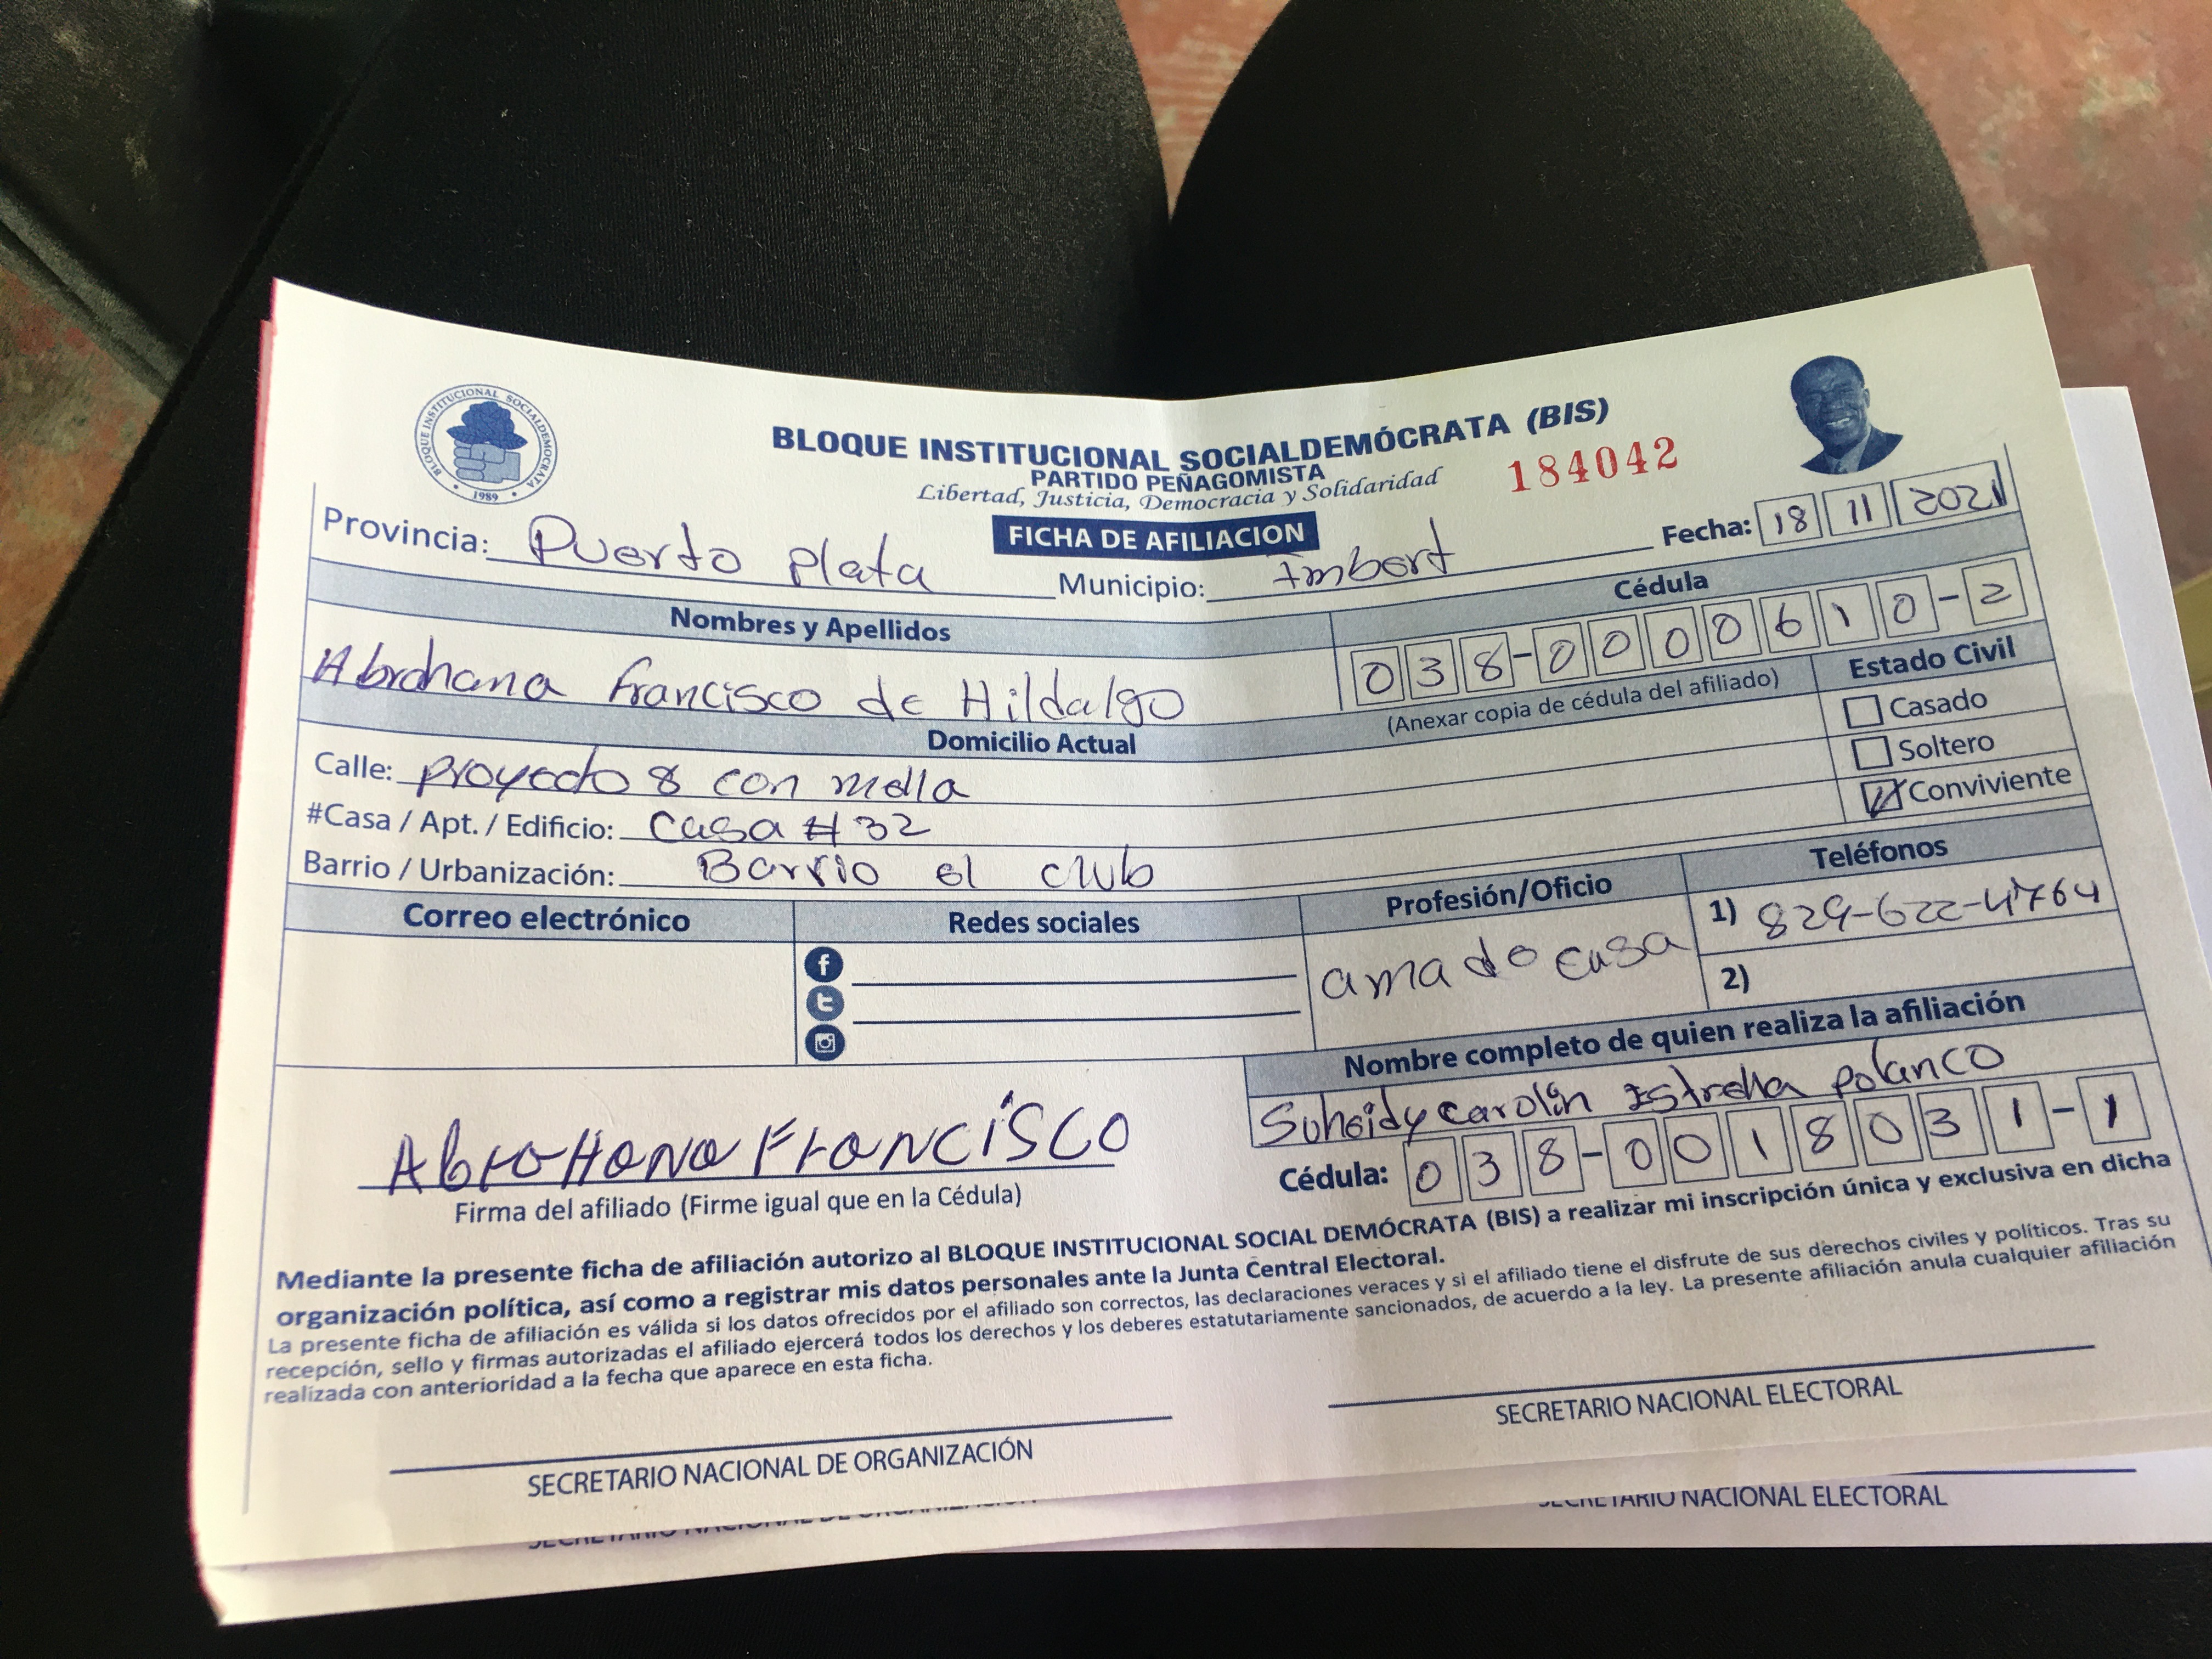 BLOQUE INSTITUCIONAL SOCIALDEMOCRATA
1989
BLOQUE INSTITUCIONAL SOCIALDEMÓCRATA (BIS)
PARTIDO PEÑAGOMISTA
Libertad, Justicia, Democracia y Solidaridad
184042
FICHA DE AFILIACION
Fecha: 18 11 2021
Provincia: Puerto Plata Municipio: Imbert
Nombres y Apellidos Cédula
Abrahana Francisco de Hildalgo 038-0000610-2
(Anexar copia de cédula del afiliado)
Estado Civil
Casado
Soltero
Conviviente
Domicilio Actual
Calle: proyecto 8 con mella
#Casa / Apt. / Edificio: casa #32
Barrio / Urbanización: Barrio el club
Correo electrónico Redes sociales Profesión/Oficio Teléfonos
ama de casa
1) 829-622-4764
2)
Nombre completo de quien realiza la afiliación
Suheidy carolin Estrella polanco
Cédula: 038-0018031-1
AbraHana FranciSco
Firma del afiliado (Firme igual que en la Cédula)
Mediante la presente ficha de afiliación autorizo al BLOQUE INSTITUCIONAL SOCIAL DEMÓCRATA (BIS) a realizar mi inscripción única y exclusiva en dicha
organización política, así como a registrar mis datos personales ante la Junta Central Electoral.
La presente ficha de afiliación es válida si los datos ofrecidos por el afiliado son correctos, las declaraciones veraces y si el afiliado tiene el disfrute de sus derechos civiles y políticos. Tras su
recepción, sello y firmas autorizadas el afiliado ejercerá todos los derechos y los deberes estatutariamente sancionados, de acuerdo a la ley. La presente afiliación anula cualquier afiliación
realizada con anterioridad a la fecha que aparece en esta ficha.
SECRETARIO NACIONAL DE ORGANIZACIÓN
SECRETARIO NACIONAL ELECTORAL
SECRETARIO NACIONAL DE ORGANIZACIÓN
SECRETARIO NACIONAL ELECTORAL